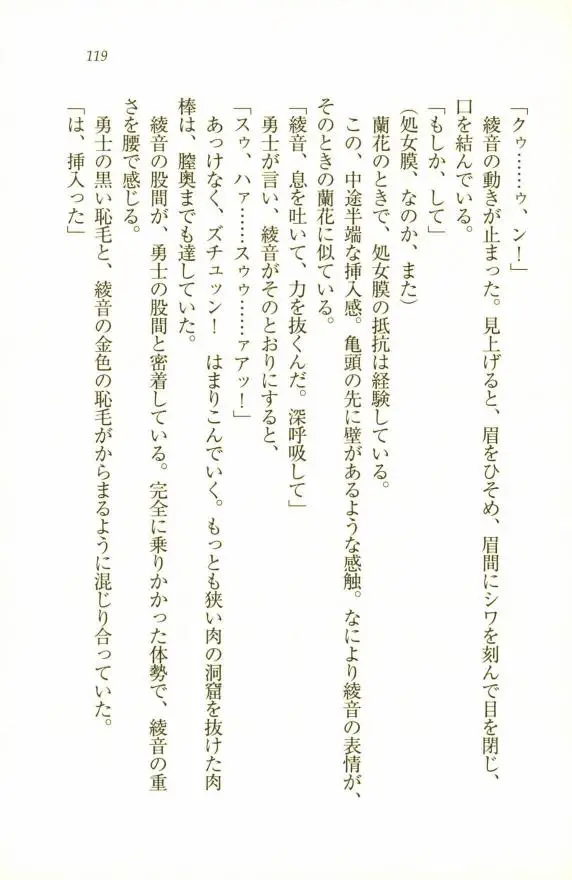 119
「クゥ……ゥ、ン！」
綾音の動きが止まった。見上げると、眉をひそめ、眉間にシワを刻んで目を閉じ、
口を結んでいる。
「もしか、して」
(処女膜、なのか、また)
蘭花のときで、処女膜の抵抗は経験している。
この、中途半端な挿入感。亀頭の先に壁があるような感触。なにより綾音の表情が、
そのときの蘭花に似ている。
「綾音、息を吐いて、力を抜くんだ。深呼吸して」
勇士が言い、綾音がそのとおりにすると、
「スゥ、ハァ……スゥゥ……ァアッ！」
あっけなく、ズチュッン！　はまりこんでいく。もっとも狭い肉の洞窟を抜けた肉
棒は、膣奥までも達していた。
綾音の股間が、勇士の股間と密着している。完全に乗りかかった体勢で、綾音の重
さを腰で感じる。
勇士の黒い恥毛と、綾音の金色の恥毛がからまるように混じり合っていた。
「は、挿入った」